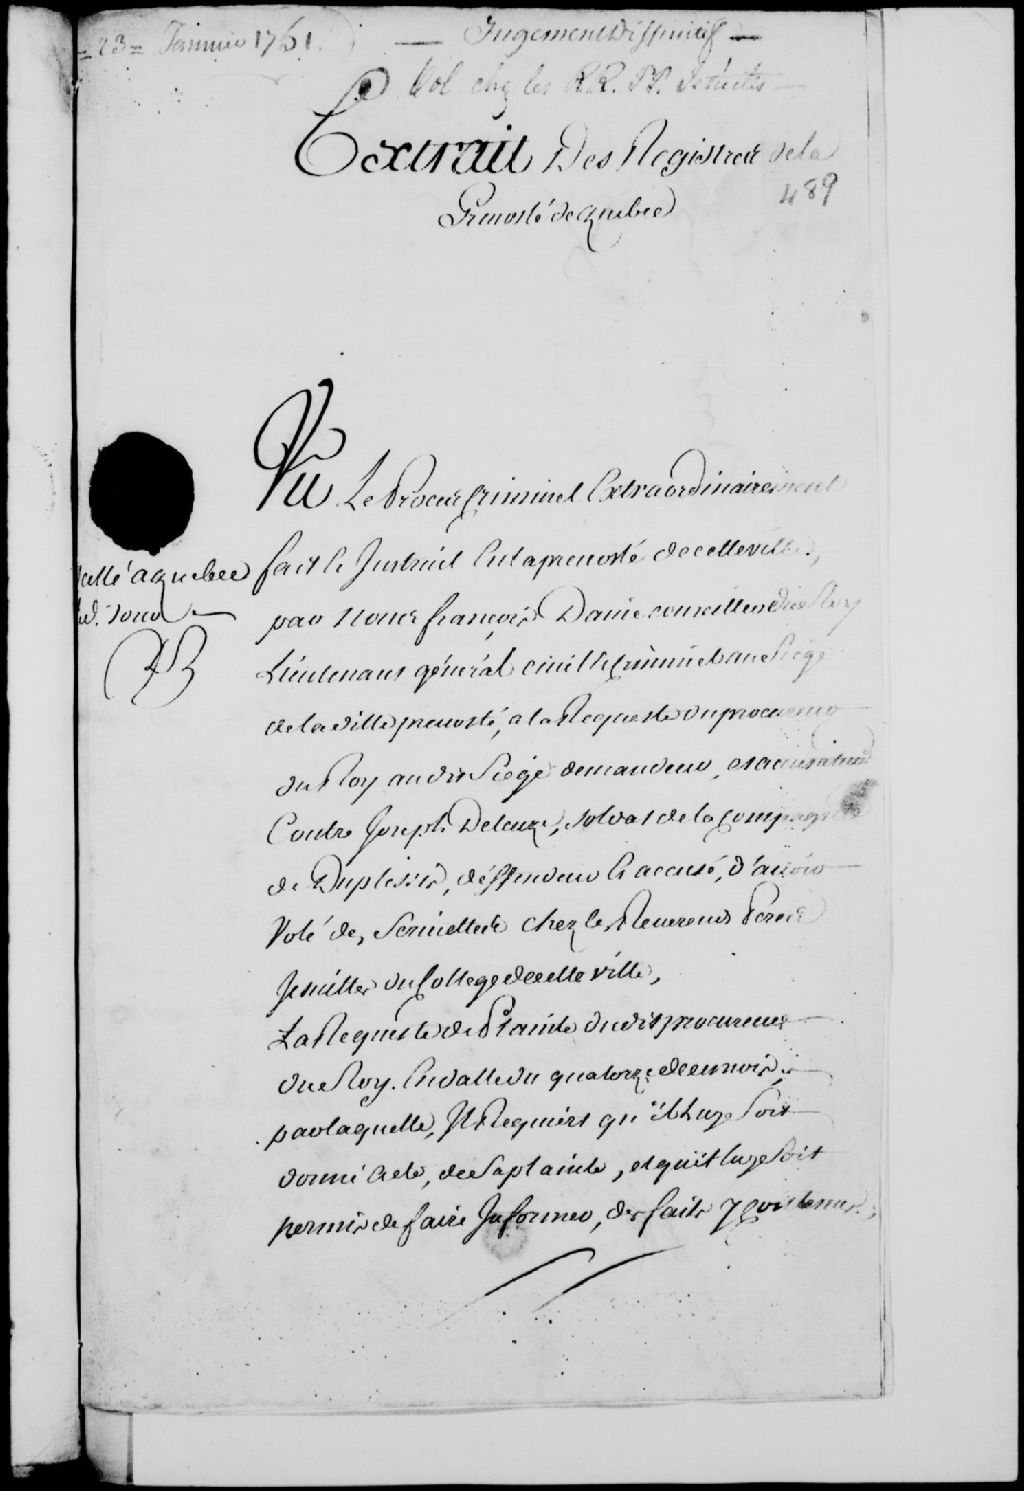 = 23 = Janvier 1751.
— Jugement Diffinitif —
Vol chez les RR. PP. Jésuites —
Extrait Des Registres dela
489
Preuosté de quebec
Vu Le Procès Criminel Extraordinairement
fait & Instruit En la preuosté de cette ville,
par Nous françois Daine conseiller du Roy
Lieutenant général ciuil & Criminel au Siege
de lad. ville preuosté, a la Requeste du procureur
du Roy audit Siege demandeur, et accusateur
Contre Joseph Deleuze, soldat de la Compagnie
de Duplessis, déffendeur & accusé, d'auoir
Volé des Seruiettes chez les Reuerends Peres
Jesuittes du College de cette ville,
La Requeste de Plainte dudit procureur
du Roy. En datte du quatorze de ce mois,
par laquelle, Il Requiert qu'il luy Soit
donné Acte, de Sa plainte, et qu'il luy Soit
permis de faire Informer, des faits y Contenus.,
scellé a quebec
led. Jour